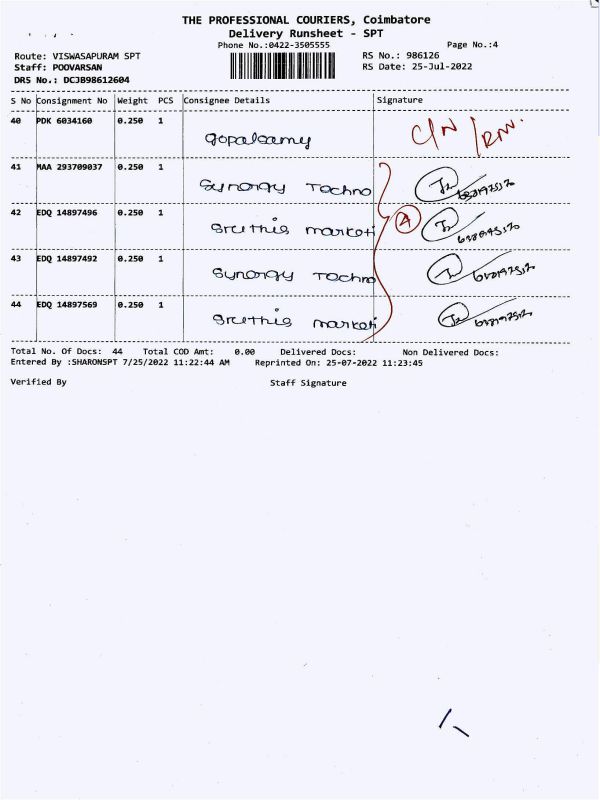 THE PROFESSIONAL COURIERS, Coimbatore
Delivery Runsheet - SPT
Phone No.:0422-3505555
Page No.:4
Route: VISWASAPURAM SPT
RS No.: 986126
Staff: POOVARSAN
RS Date: 25-Jul-2022
DRS No.: DCJB98612604
S No Consignment No Weight PCS Consignee Details Signature
40 PDK 6034160 0.250 1
gopalsamy C/N /RNV.
41 MAA 293709037 0.250 1
Synorgy Techno
42 EDQ 14897496 0.250 1
Sruthis marketi 4
43 EDQ 14897492 0.250 1
Synorgy Techno
44 EDQ 14897569 0.250 1
Sruthis marketi
Total No. Of Docs: 44 Total COD Amt: 0.00 Delivered Docs: Non Delivered Docs:
Entered By :SHARONSPT 7/25/2022 11:22:44 AM Reprinted On: 25-07-2022 11:23:45
Verified By Staff Signature